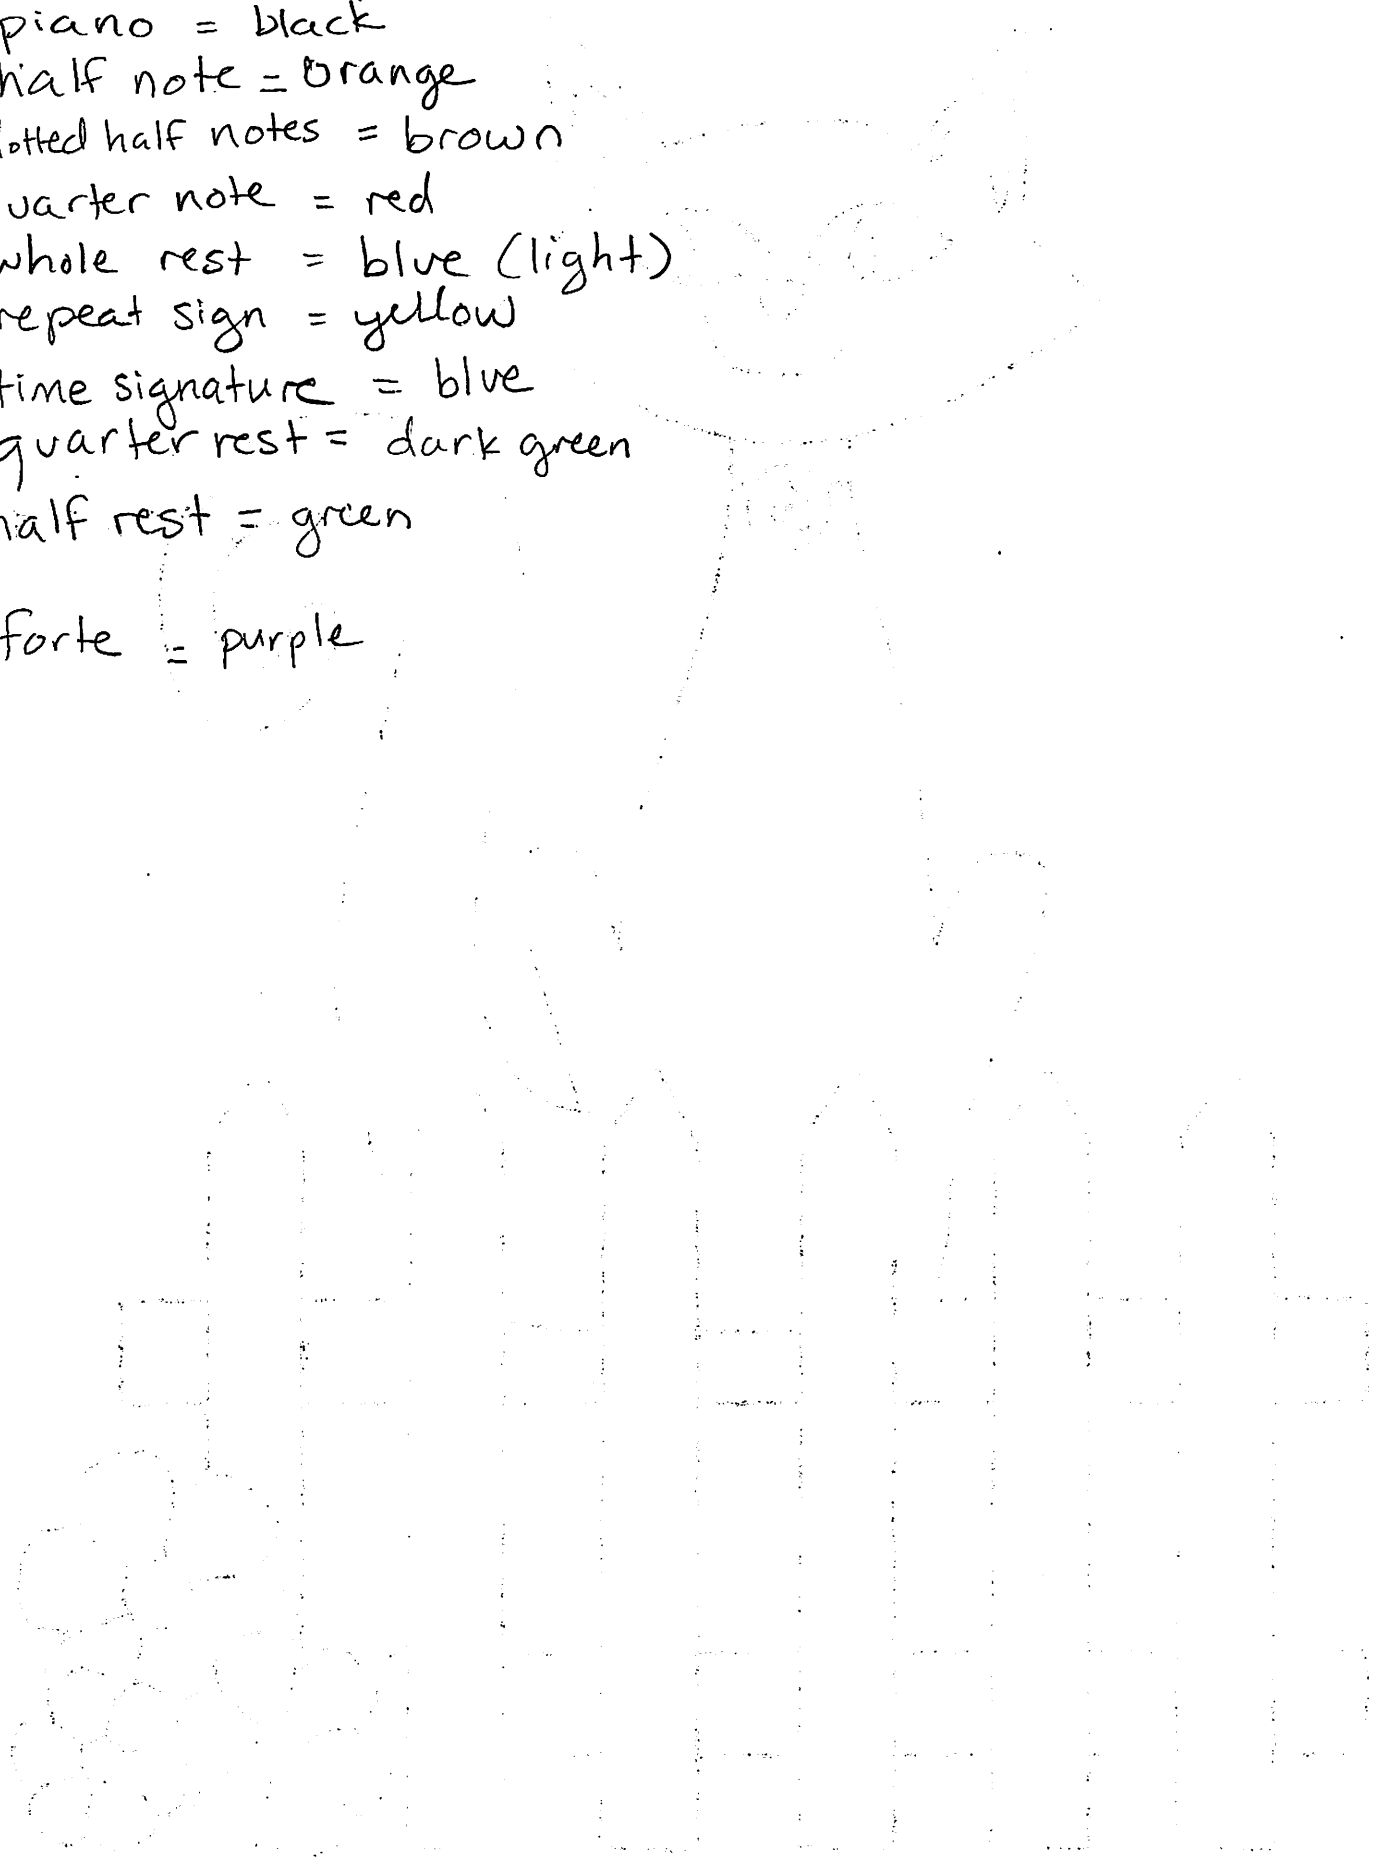 piano = black
half note = orange
dotted half notes = brown
uarter note = red
whole rest = blue (light)
repeat sign = yellow
time signature = blue
quarter rest = dark green
half rest = green
forte = purple